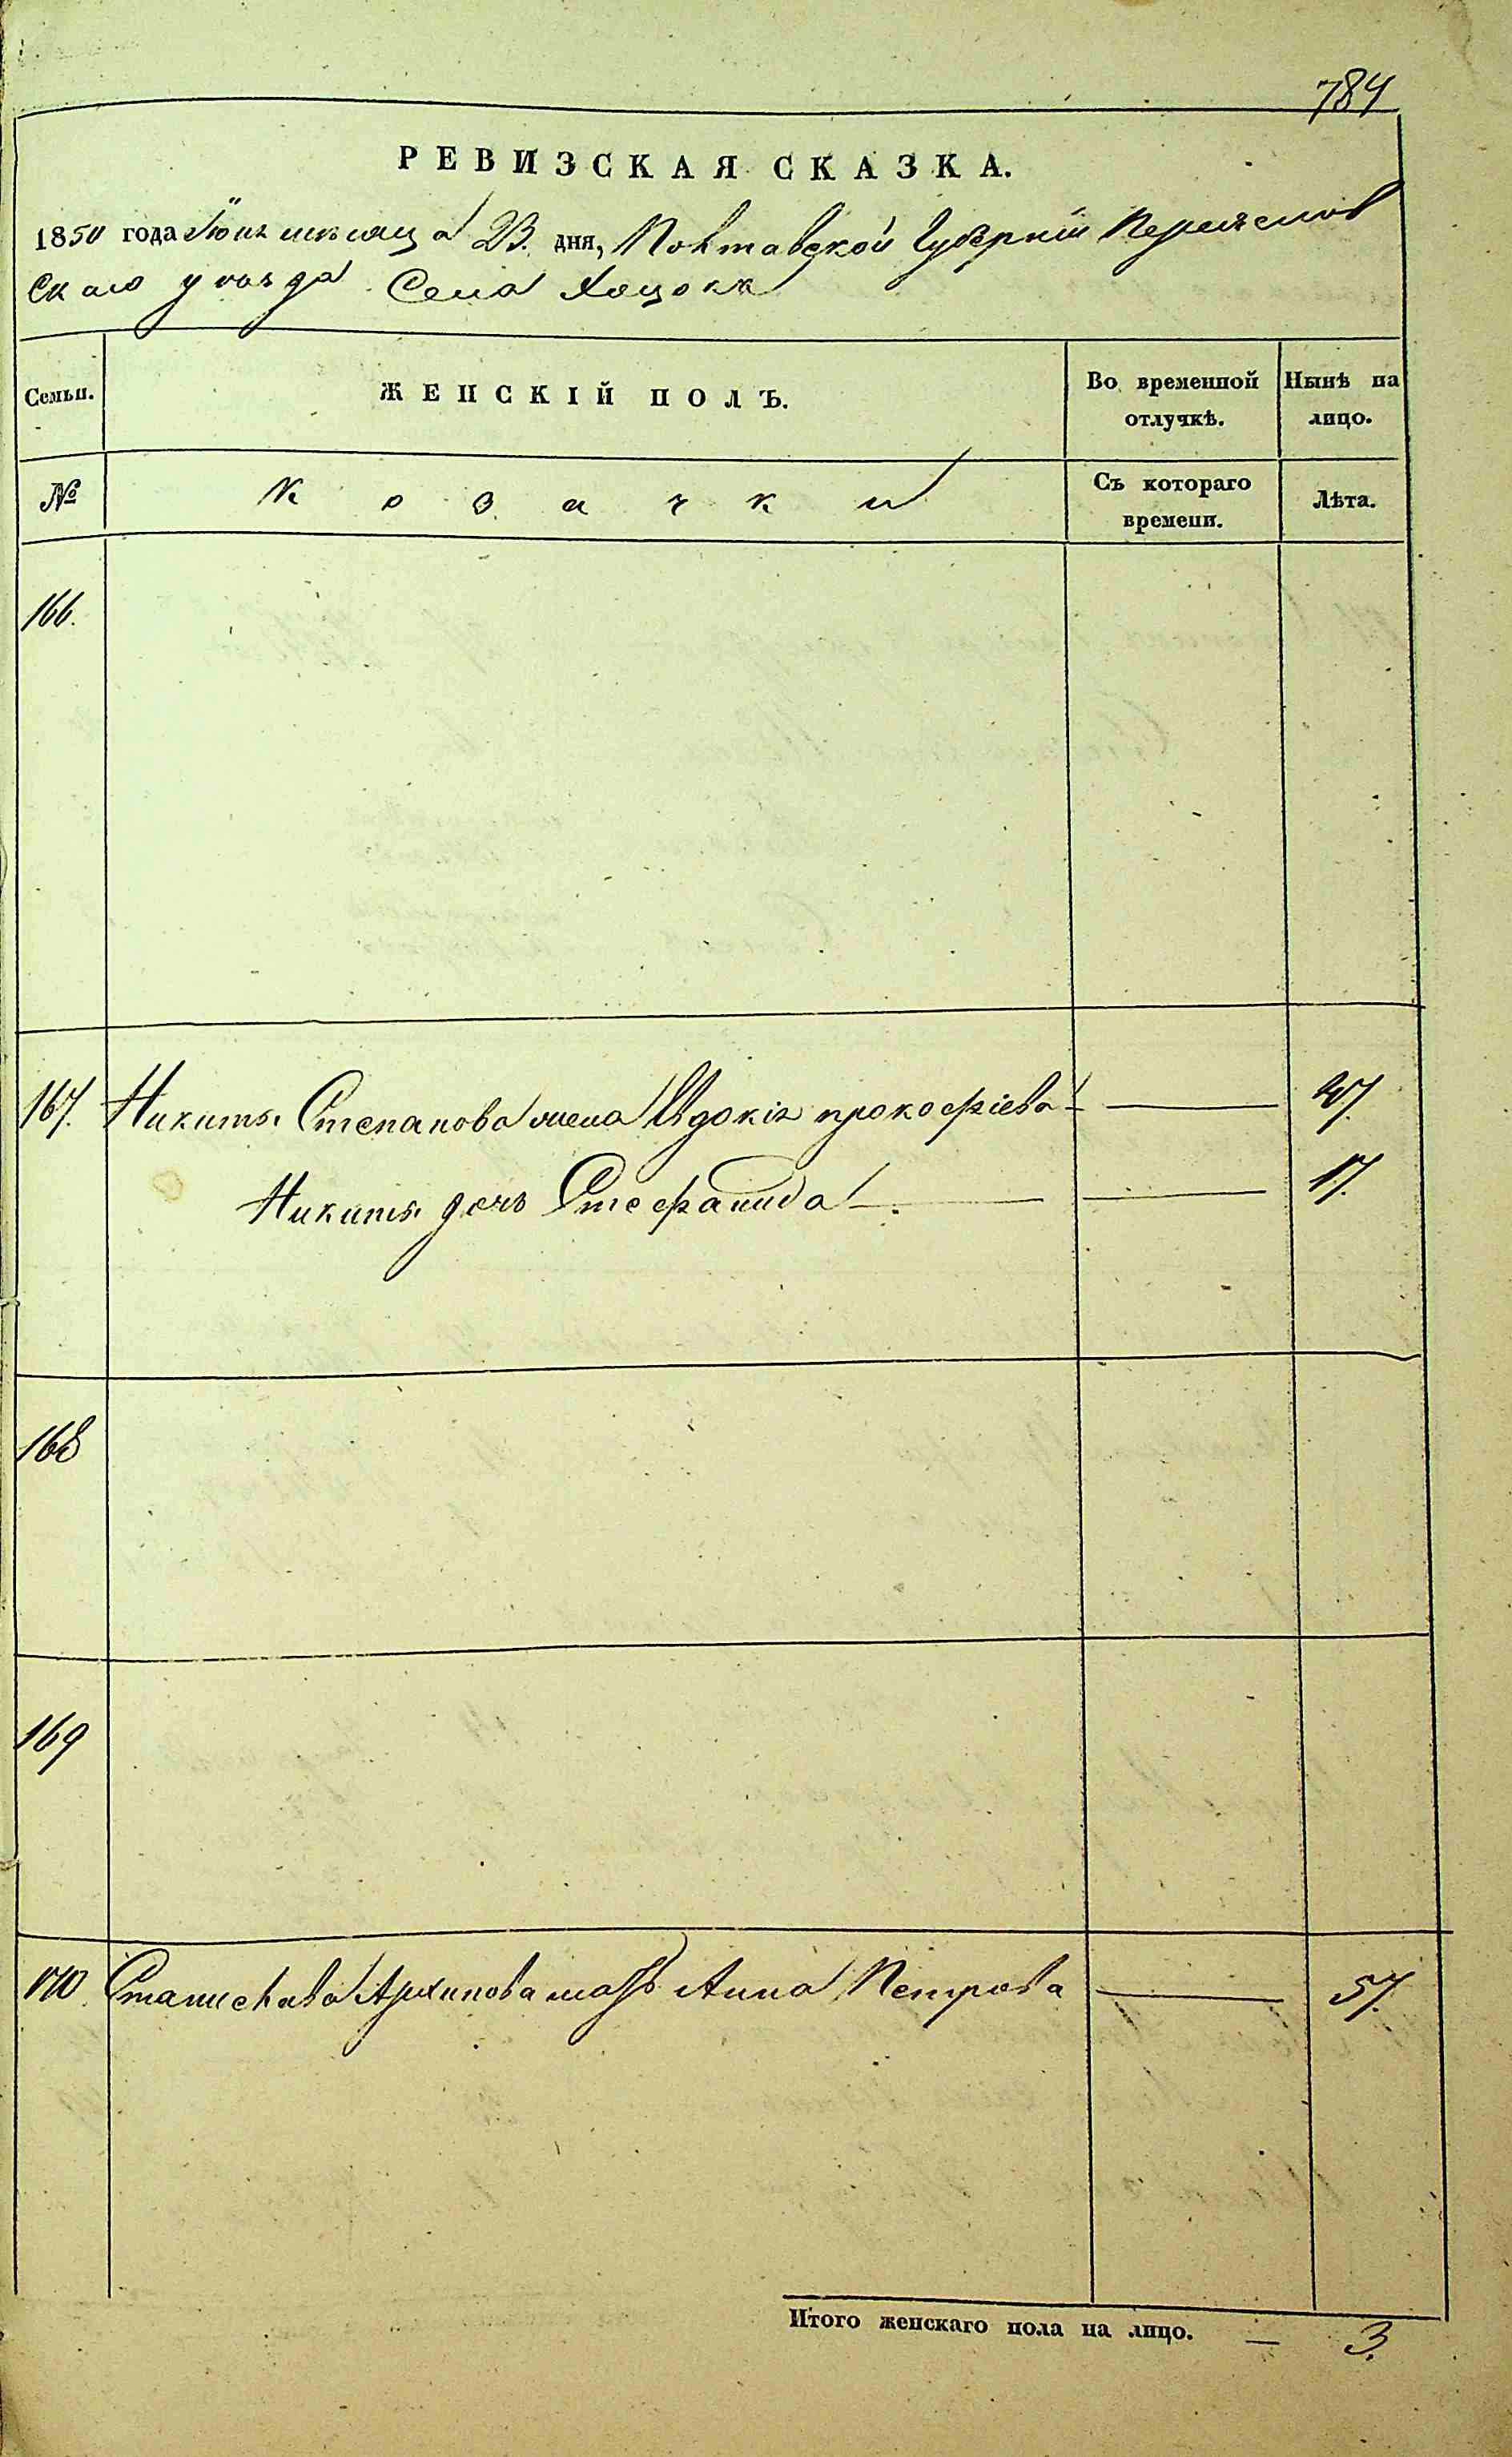 784
РЕВИЗСКАЯ СКАЗКА.
1850 года Іюня мѣсяца 23. дня, Полтавской Губерніи Переяслов
скаго уѣзда Села Хоцокъ
Семьи.
ЖЕНСКІЙ ПОЛЪ.
Во временной отлучкѣ.
Нынѣ на лицо.
№
Козачки
Съ котораго времени.
Лѣта.
166.
167. Никиты Степанова жена Евдокія прокофіева — 47.
Никиты дочь Стефанида — 17.
168
169
170. Станислава Архипова мать Анна Петрова — 57.
Итого женскаго пола на лицо. — 3.